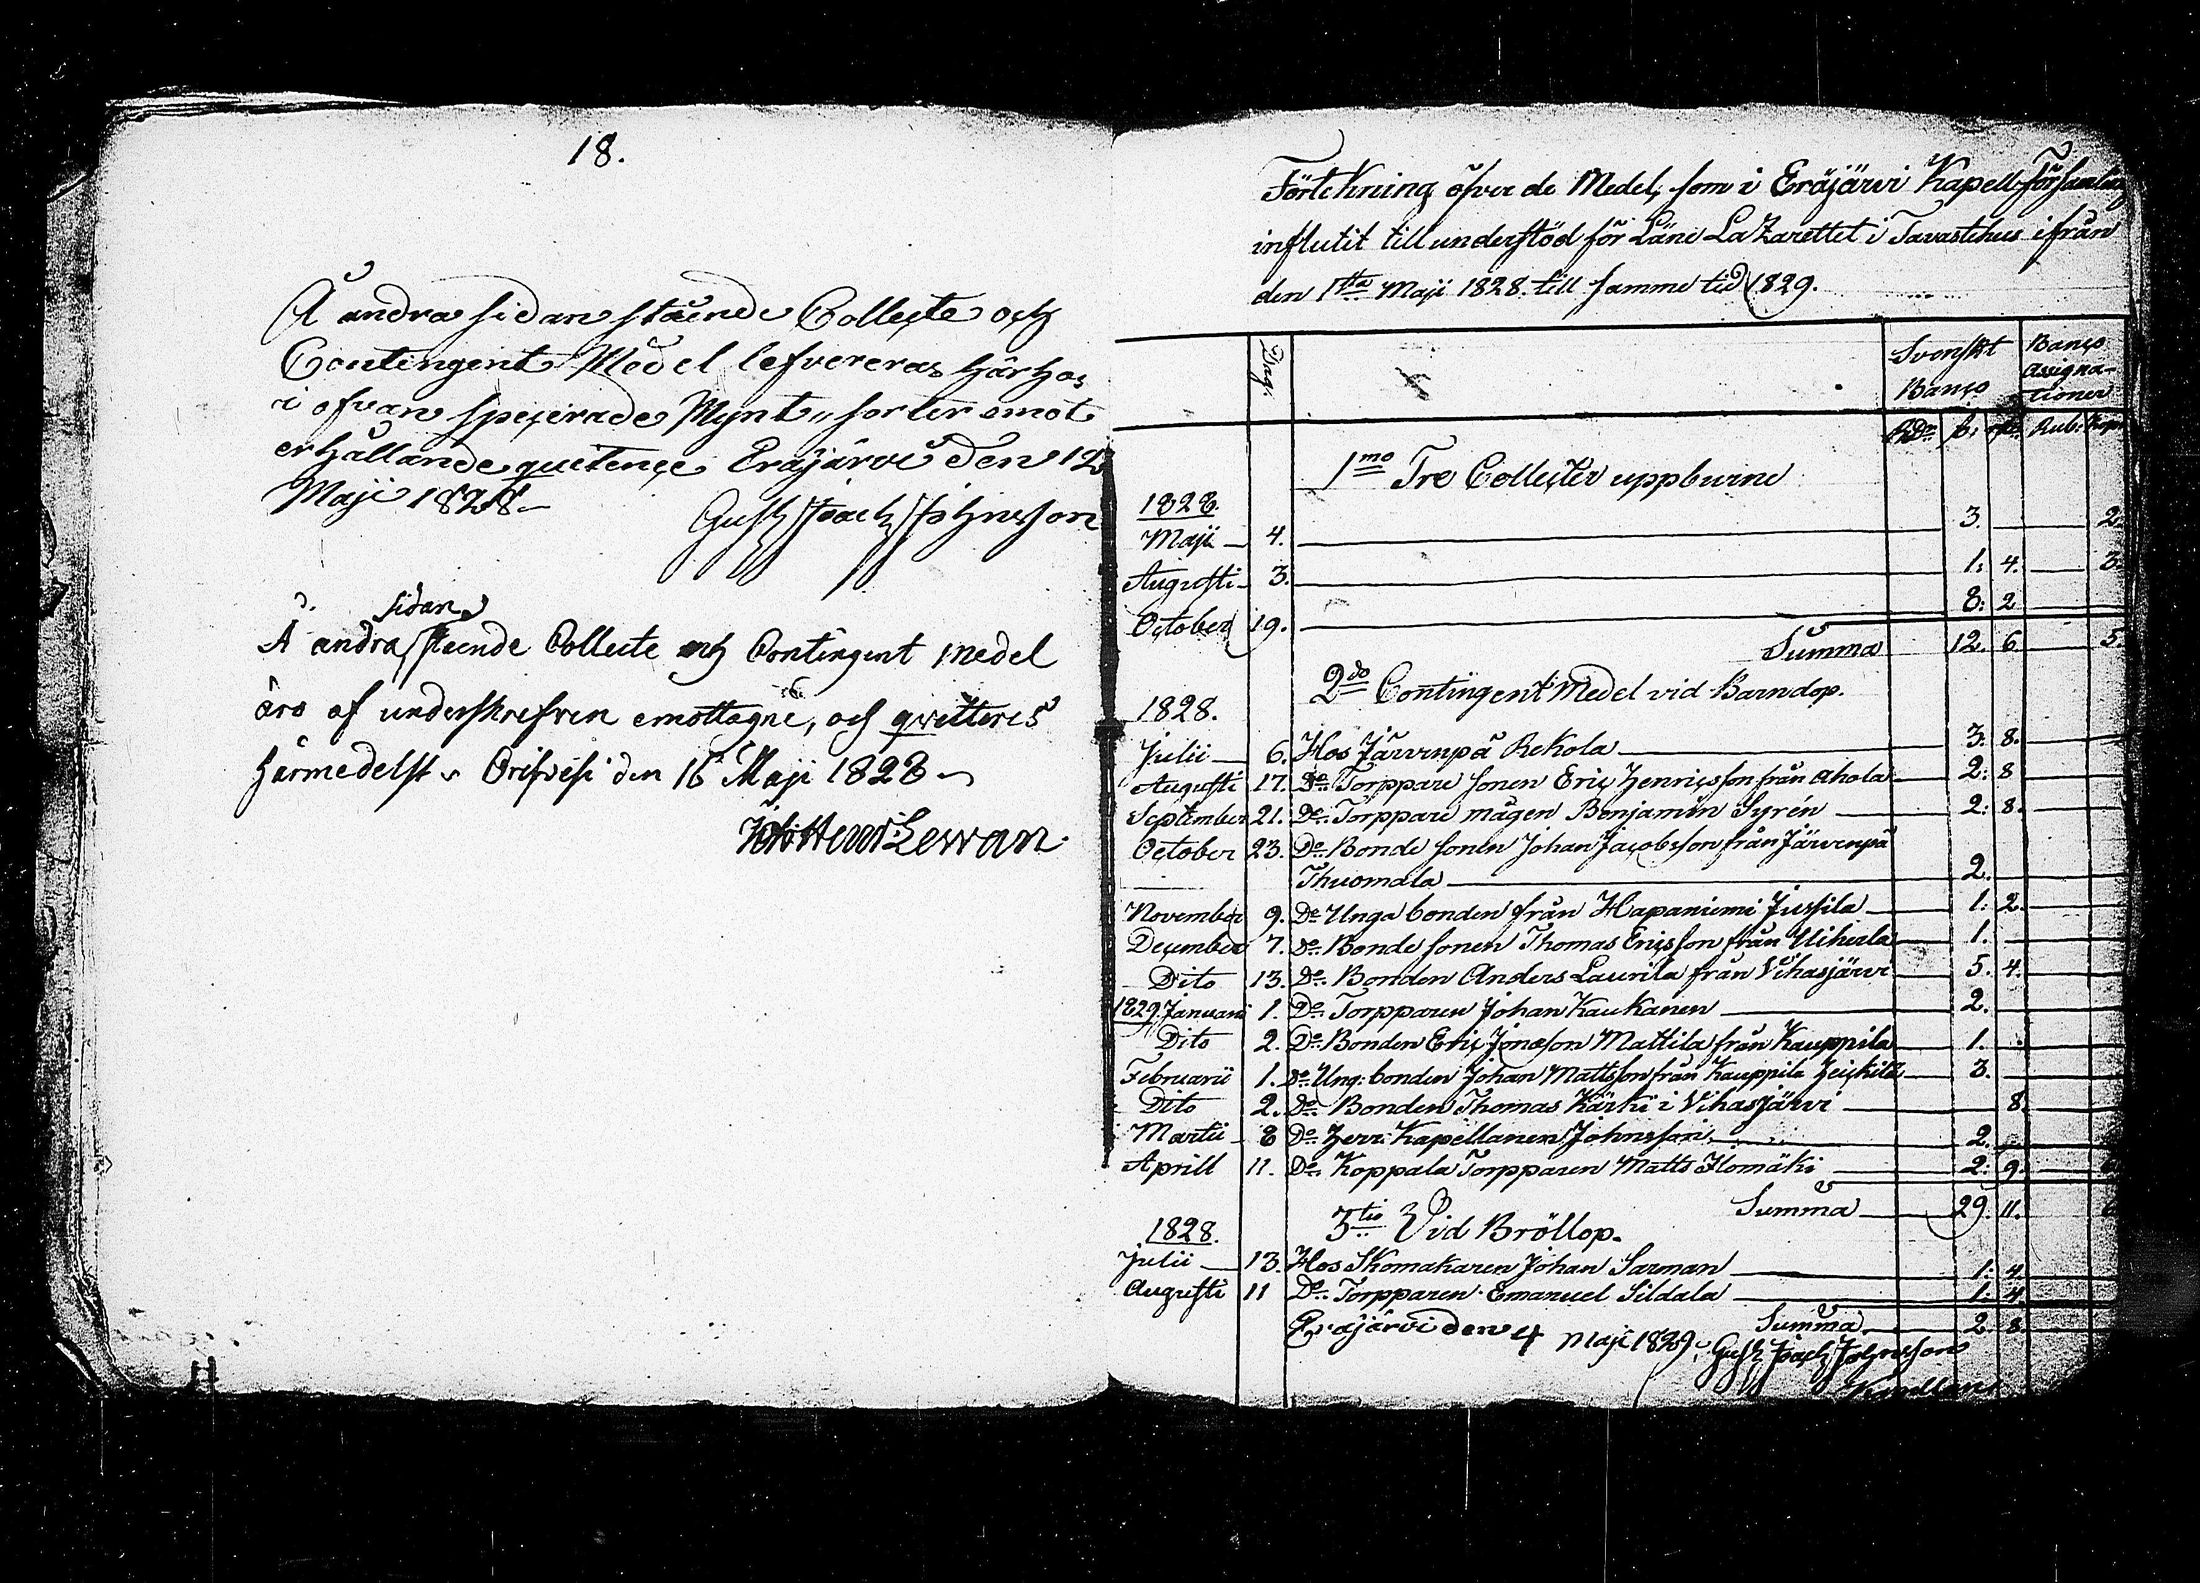 18.
Å andra sidan stående Collecte och
Contingent Medel lefvereras härhos
i ofvan specierade Mynt„ sorter emot
erhållande quitence Eräjärvi den 12
Maji 1828.
Gust Joach Johnsson
sidan
Å andra stående Collecte och Contingent medel
äro af underskrefven emottagne, och qvitteres
härmedelst. Orihvesi den 16 Maji 1828
Lewan.
Förtekning öfver de Medel, som i Eräjärvi Kapell-Församling
influtit till understöd för Läns Lazarettet i Tavastehus ifrån
den 1sta Maji 1828. till samme tid 1829.
Dag. Svenskt Banco Banco Assigna-tioner
RDr ß: rst. Rub: Kop:
1mo Tre Collecter uppburne
1828.
Maji 4. 3. 2.
Augusti 3. 1: 4. 3.
October 19. 8: 2
Summa 12. 6. 5.
2do Contingent Medel vid Barndop.
1828.
Julii 6. Hos Järvenpä Rekola 3. 8.
Augusti 17. Do Torppare sonen Eric Henricsson från Ahola 2: 8
September 21. Do Torppare mågen Benjamin Syrén 2: 8.
October 23. Do Bonde sonen Johan Jacobsson från Järvenpä
Thuomala 2.
November 9. Do Unga bonden från Hapaniemi Jussila 1: 2.
December 7. Do Bonde sonen Thomas Ericsson från Uiherla 1.
Dito 13. Do Bonden Anders Laurila från Vihasjärvi 5. 4.
1829. Januarii 1. Do Torpparen Johan Kaukanen 2.
Dito 2. Do Bonden Eric Jonasson Mattila från Kauppila 1.
Februarii 1. Do Ung: bonden Johan Mattsson från Kauppila Heickilä 3.
Dito 2. Do Bonden Thomas Kärki i Vihasjärvi 8.
Martii 8 Do Herr: Kapellanen Johnsson 2.
Aprill 11. Do Koppala Torpparen Matts Ilomäki 2: 9. 6
Summa 29. 11. 6
3tio Vid Bröllop.
1828.
Julii 13. Hos Skomakaren Johan Sarman 1: 4.
Augusti 11 Do Torpparen Emanuel Sildala 1: 4
Summa 2. 8.
Eräjärvi den 4 Maji 1829. Gust Joach Johnsson